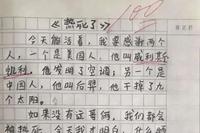 《热死了》 100
今天能活着，我要感谢两个
人，一个是美国人，他叫威利斯
开利，他发明了空调；另一个是
中国人，他叫后羿，他干掉了九
个太阳。
如果没有这哥俩，我们都会